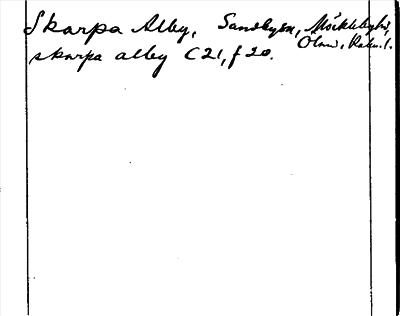 Skarpa Alby, Sandbyen, Möckleby hd,
Öland, Kalm. l.
skarpa alby C21, f 20.